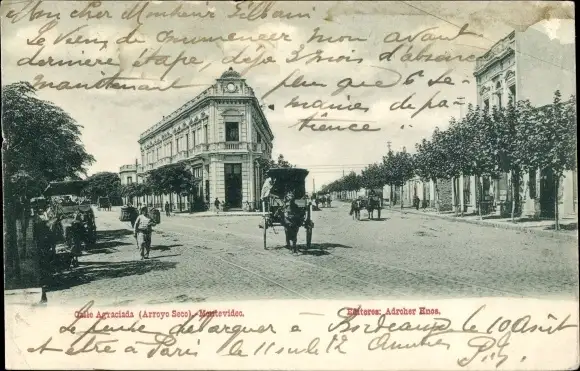 Mon cher Monsieur
Je viens de commencer mon avant
dernière étape, déjà 3 mois d'absence
maintenant plus que 6 se-
maines de pa-
tience
Calle Agraciada (Arroyo Seco).-Montevideo.
Editores: Adroher Hnos.
Je pense débarquer à Bordeaux le 10 Août
et être à Paris le 11 ou le 12